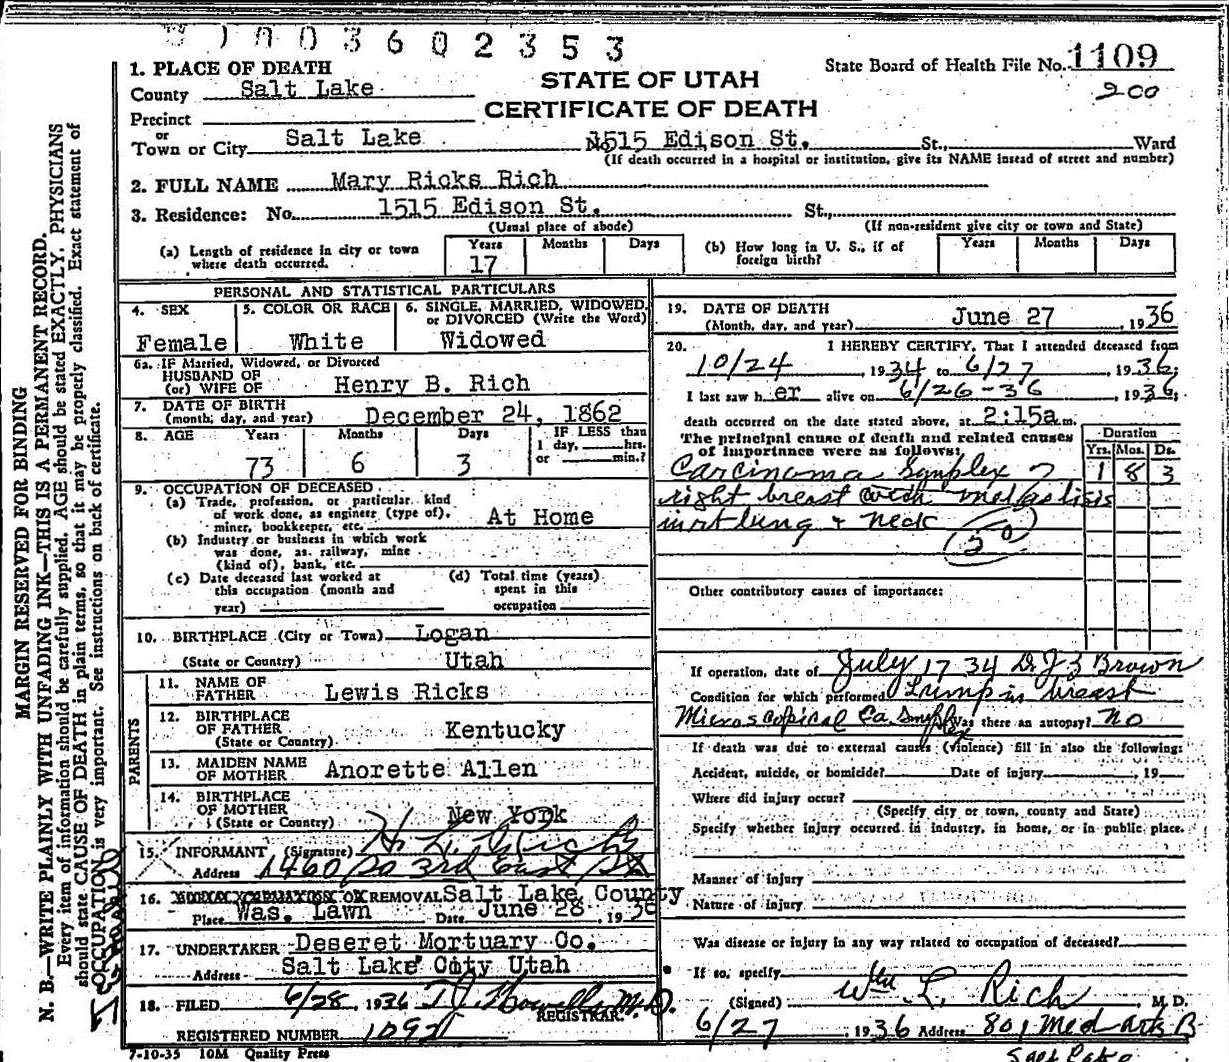 003602353
1. PLACE OF DEATH
STATE OF UTAH
CERTIFICATE OF DEATH
State Board of Health File No. 1109
200
County Salt Lake
Precinct
or
Town or City Salt Lake No. 1515 Edison St. St., Ward
(If death occurred in a hospital or institution, give its NAME instead of street and number)
2. FULL NAME Mary Ricks Rich
3. Residence: No. 1515 Edison St. St.,
(Usual place of abode) (If non-resident give city or town and State)
(a) Length of residence in city or town where death occurred. Years 17 Months Days
(b) How long in U. S., if of foreign birth? Years Months Days
PERSONAL AND STATISTICAL PARTICULARS
4. SEX Female
5. COLOR OR RACE White
6. SINGLE, MARRIED, WIDOWED, or DIVORCED (Write the Word) Widowed
6a. IF Married, Widowed, or Divorced
HUSBAND OF
(or) WIFE OF Henry B. Rich
7. DATE OF BIRTH
(month, day, and year) December 24, 1862
8. AGE Years 73 Months 6 Days 3
IF LESS than
1 day, hrs.
or min.?
9. OCCUPATION OF DECEASED
(a) Trade, profession, or particular kind
of work done, as engineer (type of),
miner, bookkeeper, etc. At Home
(b) Industry or business in which work
was done, as railway, mine
(kind of), bank, etc.
(c) Date deceased last worked at
this occupation (month and
year)
(d) Total time (years)
spent in this
occupation
10. BIRTHPLACE (City or Town) Logan
(State or Country) Utah
PARENTS
11. NAME OF
FATHER Lewis Ricks
12. BIRTHPLACE
OF FATHER Kentucky
(State or Country)
13. MAIDEN NAME
OF MOTHER Anorette Allen
14. BIRTHPLACE
OF MOTHER New York
(State or Country)
15. INFORMANT (Signature) H. L. Rich
Address 1460 So 3rd East
16. BURIAL CREMATION OR REMOVAL Salt Lake County
Place Was. Lawn Date June 28, 1936
17. UNDERTAKER Deseret Mortuary Co.
Address Salt Lake City Utah
18. FILED 6/28 1936 M.D.
REGISTRAR.
REGISTERED NUMBER
7-10-35 10M Quality Press
19. DATE OF DEATH
(Month, day, and year) June 27, 1936
20. I HEREBY CERTIFY, That I attended deceased from
10/24, 1934 to 6/27, 1936,
I last saw her alive on 6/26-36, 1936,
death occurred on the date stated above, at 2:15a m.
The principal cause of death and related causes
of importance were as follows:
Duration
Yrs. Mos. Ds.
Carcinoma Simplex 1 8 3
right breast with metastisis
in rt lung + neck
50
Other contributory causes of importance:
If operation, date of July 17 34 Dr J Z Brown
Condition for which performed Lump in breast
Microscopical Ca. Simplex Was there an autopsy? no
If death was due to external causes (violence) fill in also the following:
Accident, suicide, or homicide? Date of injury , 19
Where did injury occur?
(Specify city or town, county and State)
Specify whether injury occurred in industry, in home, or in public place.
Manner of Injury
Nature of Injury
Was disease or injury in any way related to occupation of deceased?
If so, specify
(Signed) Wm L. Rich M. D.
6/27, 1936 Address 801 Med Arts B
Salt Lake
MARGIN RESERVED FOR BINDING
N. B.—WRITE PLAINLY WITH UNFADING INK—THIS IS A PERMANENT RECORD.
Every item of information should be carefully supplied. AGE should be stated EXACTLY. PHYSICIANS
should state CAUSE OF DEATH in plain terms, so that it may be properly classified. Exact statement of
OCCUPATION is very important. See instructions on back of certificate.